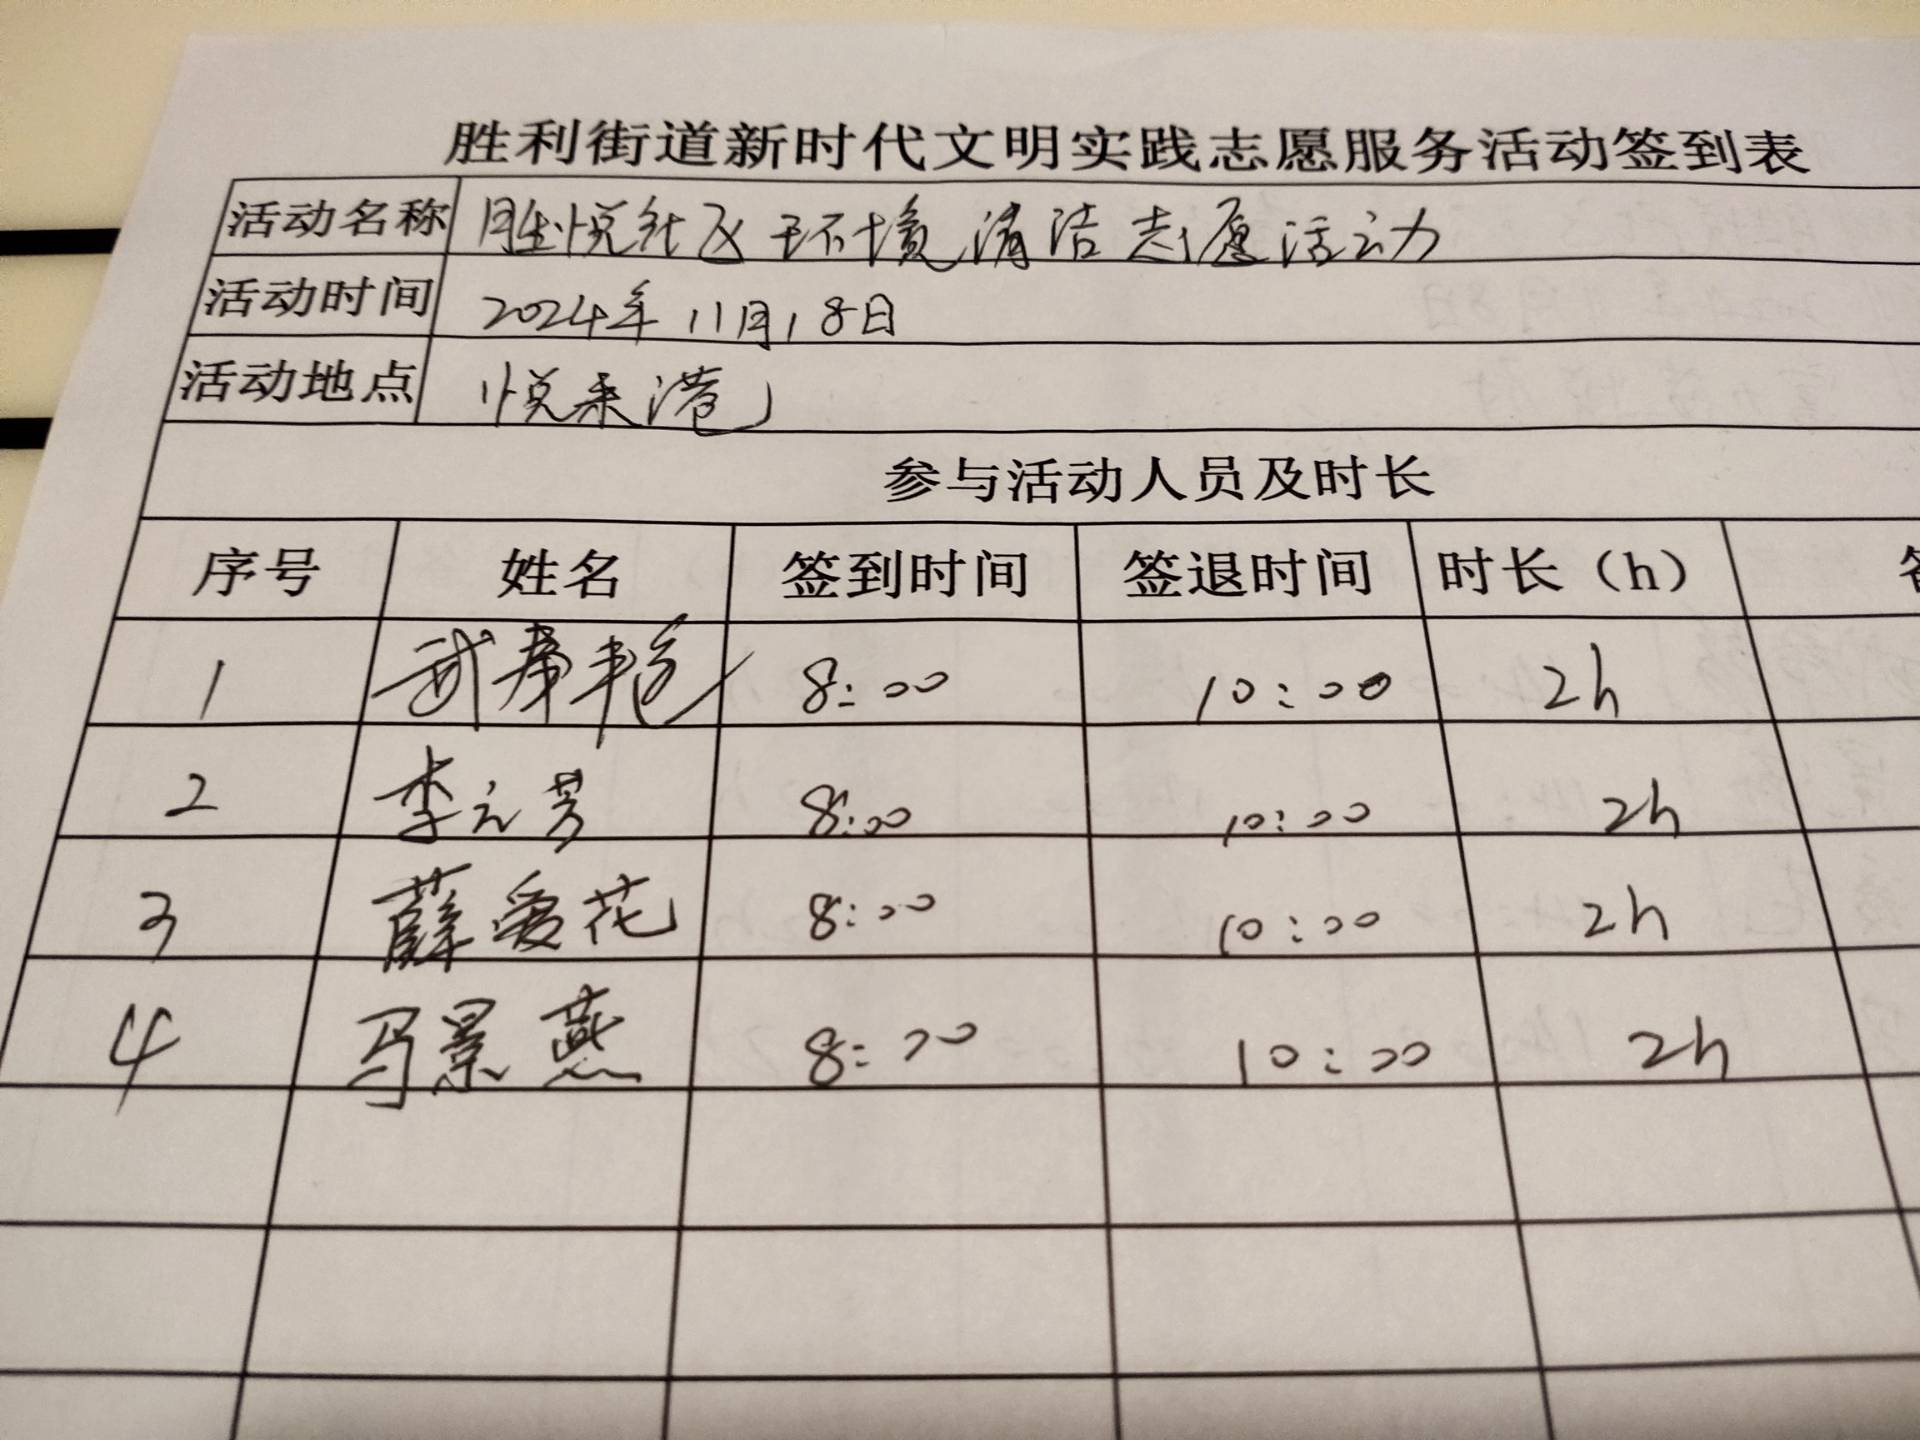 胜利街道新时代文明实践志愿服务活动签到表
活动名称 胜悦社区环境清洁志愿活动
活动时间 2024年11月18日
活动地点 悦来港
参与活动人员及时长
序号 姓名 签到时间 签退时间 时长（h）
1 武 8:00 10:00 2h
2 李元芳 8:00 10:00 2h
3 薛爱花 8:00 10:00 2h
4 马景燕 8:00 10:00 2h